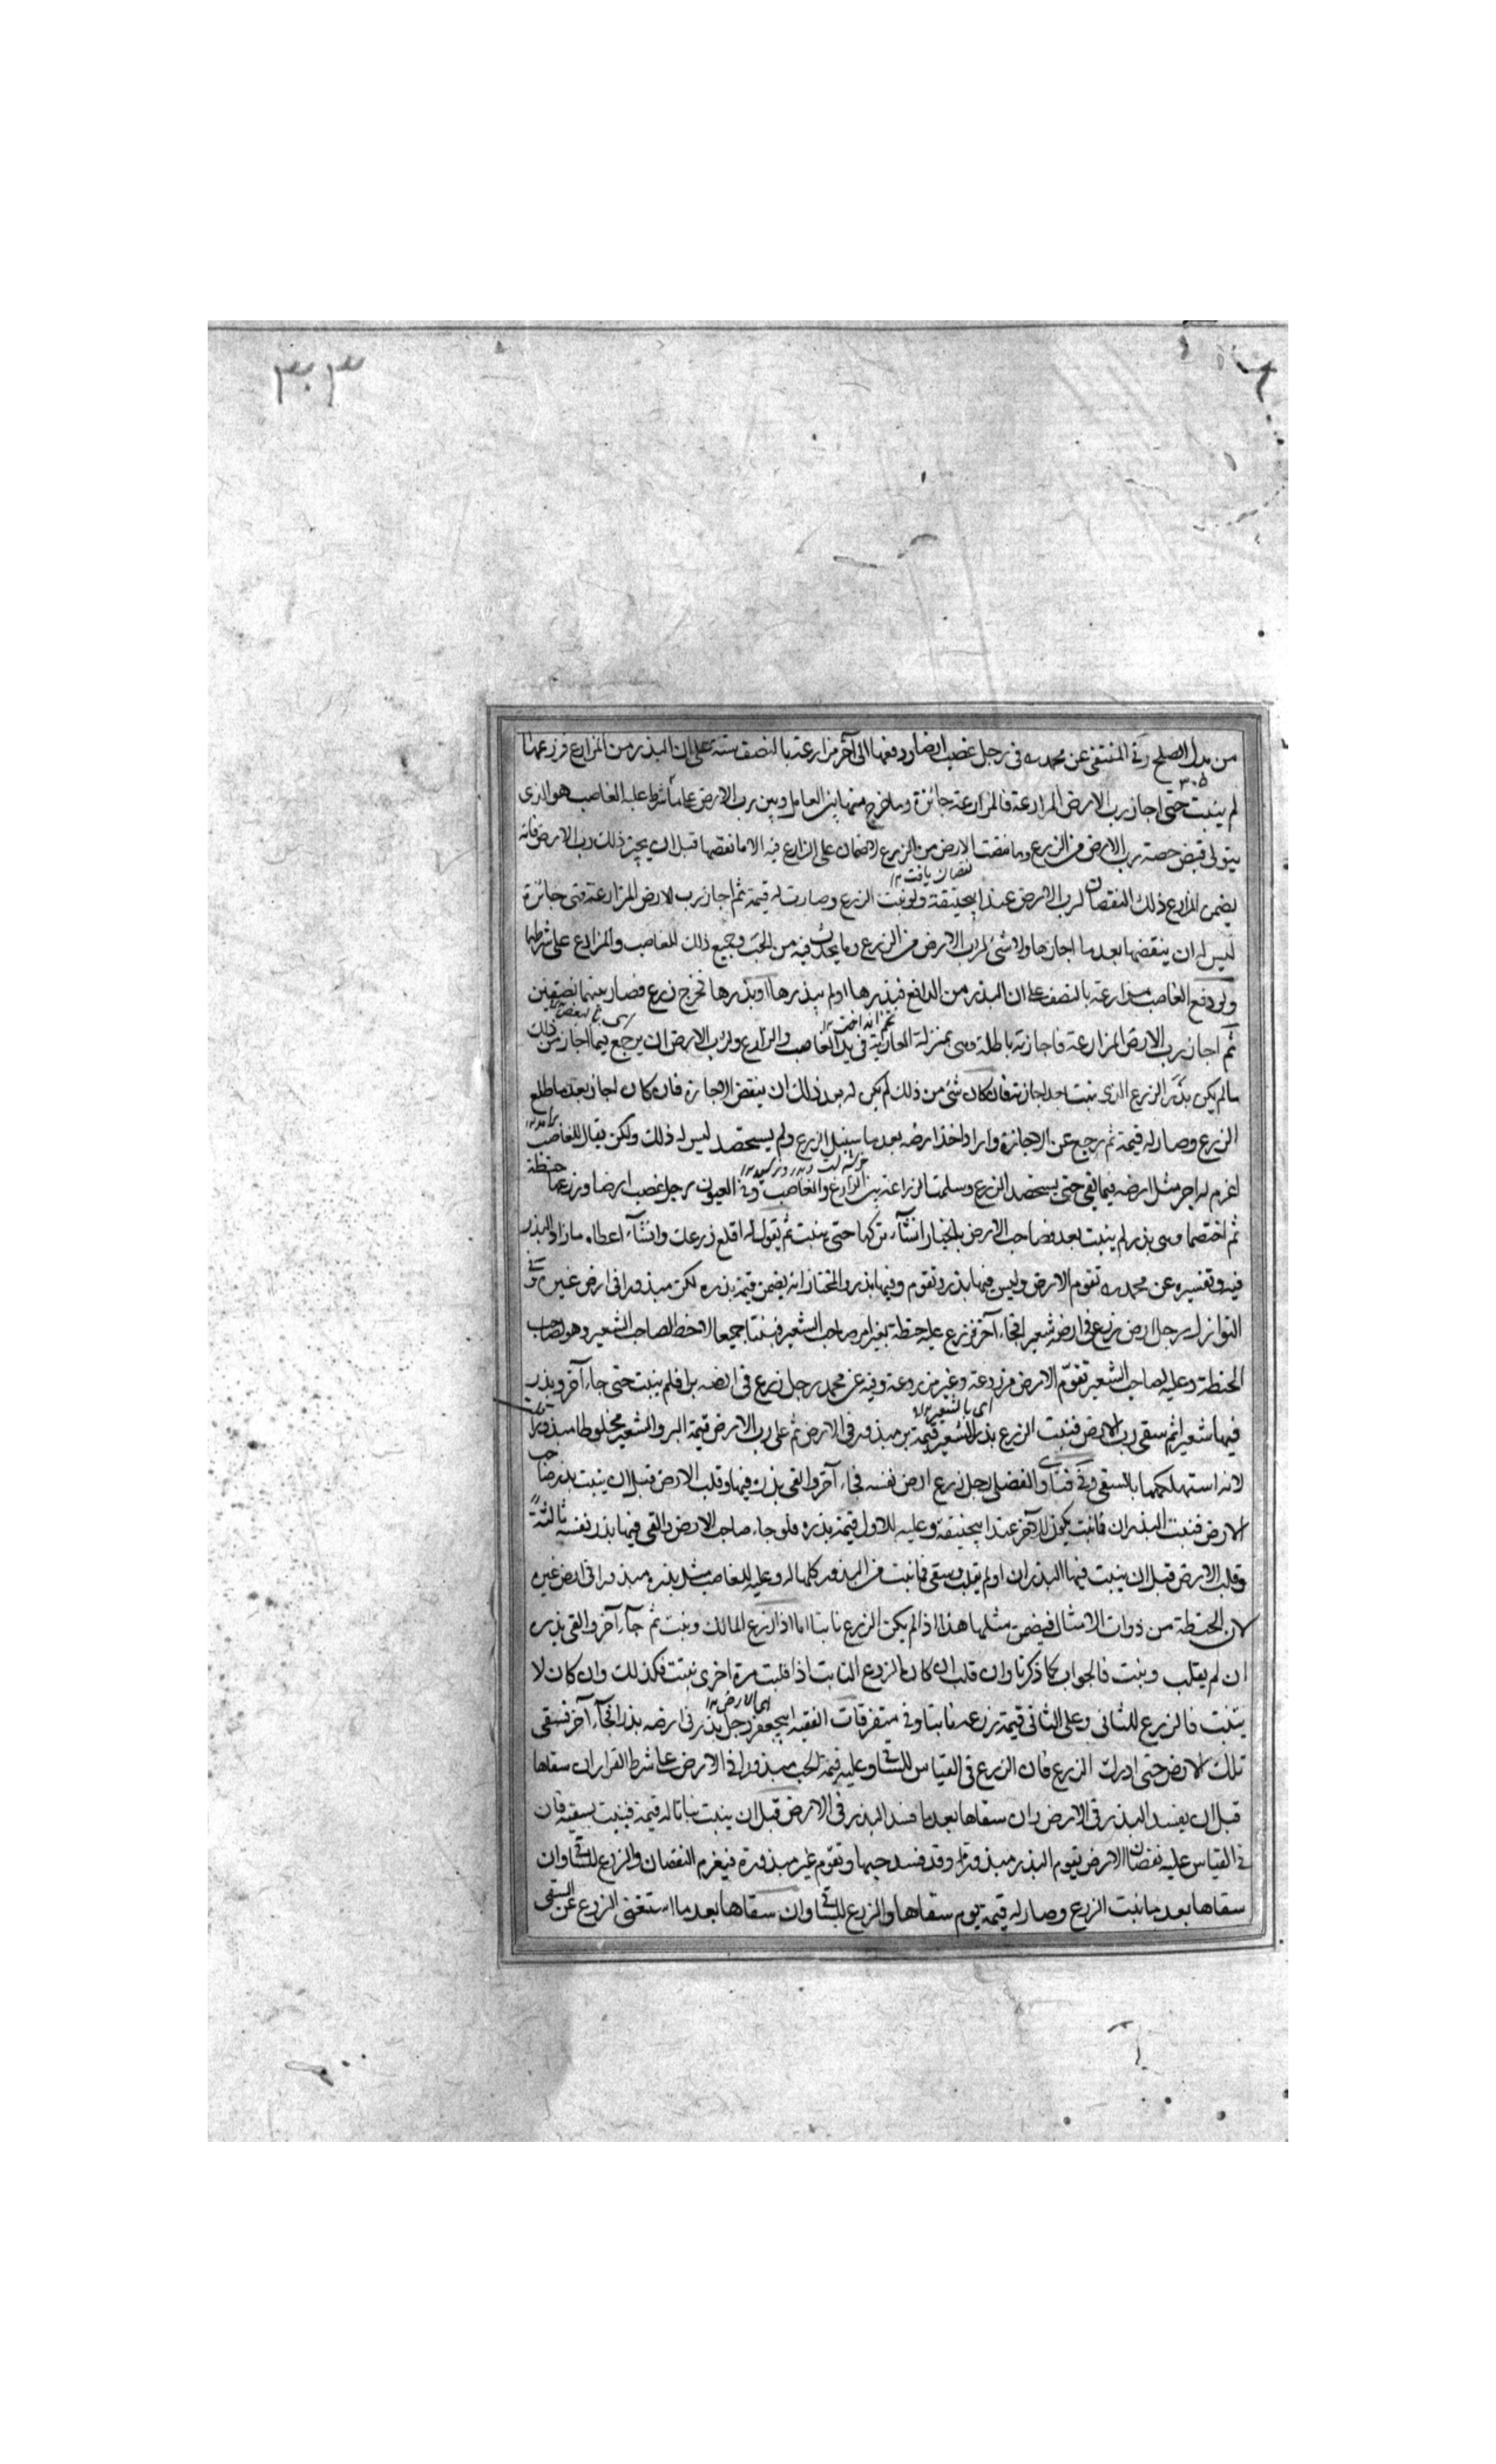 ٣٠٣
من بدل الصلح وفي المنتقى عن محمد ره في رجل غصب ارضا ودفعها الى آخر مزارعة بالنصف سنة على ان البذر من المزارع فزرعها
٣٠٥
لم ينبت حتى اجاز رب الارض المزارعة فالمزارعة جائزة وما خرج منها بين العامل وبين رب الارض على ما شرط عليه الغاصب هو الذي
يتولى قبض حصة رب الارض من الزرع وما نقصت الارض من الزرع لا ضمان على الزارع فيه الا ما نقصها قبل ان يجيز ذلك رب الارض فانه
نقصان يافت ١٢
يضمن المزارع ذلك النقصان لرب الارض عند ابيحنيفة ولو نبت الزرع وصارت له قيمة ثم اجاز رب الارض المزارعة فهي جائزة
ليس له ان ينقضها بعد ما اجازها ولا شئ لرب الارض من الزرع وما يحدث فيه من الحب وجميع ذلك للغاصب والمزارع على شرطهما
ولو دفع الغاصب مزارعة بالنصف على ان البذر من الدافع فبذرها او لم يبذرها او بذرها فخرج زرع فصار بينهما نصفين
ثم اجاز رب الارض المزارعة فاجازته باطلة وهي بمنزلة العارية في يد الغاصب والزارع ولرب الارض ان يرجع فيما اجاز من ذلك
ما لم يكن بذر الزرع الذي ينبت بعد اجازته فان كان شئ من ذلك لم يكن له بعد ذلك ان ينقض الاجازة فان كان اجاز بعد ما طلع
الزرع وصار له قيمة ثم رجع عن الاجازة واراد اخذ ارضه بعد ما سنبل الزرع ولم يستحصد ليس له ذلك ولكن يقال للغاصب
اغرم له اجر مثل ارضه فيما بقي حتى يستحصد الزرع وسلمت الزراعة بين الزارع والغاصب وفي العيون رجل غصب ارضا وزرعها حنطة
ثم اختصما وهي بذر لم ينبت بعد فصاحب الارض بالخيار ان شآء تركها حتى ينبت ثم يقول له اقلع زرعك وان شآء اعطاه ما زاد البذر
فيه وتفسيره عن محمد ره تقوم الارض وليس فيها بذر وتقوم وفيها بذر والمختار انه يضمن قيمة بذره لكن مبذورا في ارض غيره وفي
النوازل رجل زرع في ارضه شعيرا فجاء آخر فزرع عليه حنطة بغير امر صاحب الشعير فنبتا جميعا لصاحب الشعير وهو لصاحب
الحنطة وعليه لصاحب الشعير تقوم الارض مزروعة وغير مزروعة وفيه عن محمد رجل زرع في ارضه برا فلم ينبت حتى جاء آخر وبذر
اى بالشعير ١٢
فيها شعيرا ثم سقى رب الارض فنبت الزرع بذر الشعير قيمة بر مبذور في الارض ثم على رب الارض قيمة البر والشعير مخلوطا مبذورا
لانه استهلكهما بالسقي وفي فتاوى الفضلي رجل زرع ارض نفسه فجاء آخر والقى بذره فيها وقلب الارض قبل ان ينبت بذر صاحب
الارض فنبت البذران فما نبت يكون للآخر عند ابيحنيفة وعليه للاول قيمة بذره فلو جاء صاحب الارض والقى فيها بذر نفسه ثالثة
وقلب الارض قبل ان ينبت فيها البذران او لم يقلب وسقى فما نبت من البذور كلها له وعليه للغاصب مثل بذره مبذورا في ارض غيره
لان الحنطة من ذوات الامثال فيضمن مثلها هذا اذا لم يكن الزرع نابتا اما اذا زرع المالك ونبت ثم جآء آخر والقى بذره
ان لم يقلب ونبت فالجواب كما ذكرنا وان قلب ان كان الزرع النابت اذا قلبت مرة اخرى نبتت فكذلك وان كان لا
ينبت فالزرع للثاني وعلى الثاني قيمة زرعه نابتا وفي متفرقات الفقيه ابيجعفر رجل بذر في ارضه بذرا فجآء آخر فسقى
تلك الارض حتى ادرك الزرع فان الزرع في القياس للساقي وعليه قيمة الحب مبذورا في الارض على شرط القرار ان سقاها
قبل ان يفسد البذر في الارض وان سقاها بعد ما فسد البذر في الارض قبل ان ينبت نباتا له قيمة فينبت بسقيه فان
في القياس عليه نقصان الارض يقوم البذر مبذورة وقد فسد حبها وتقوم غير مبذورة فيغرم النقصان والزرع للساقي وان
سقاها بعد ما نبت الزرع وصار له قيمة يوم سقاها والزرع للساقي وان سقاها بعد ما استغنى الزرع عن السقي